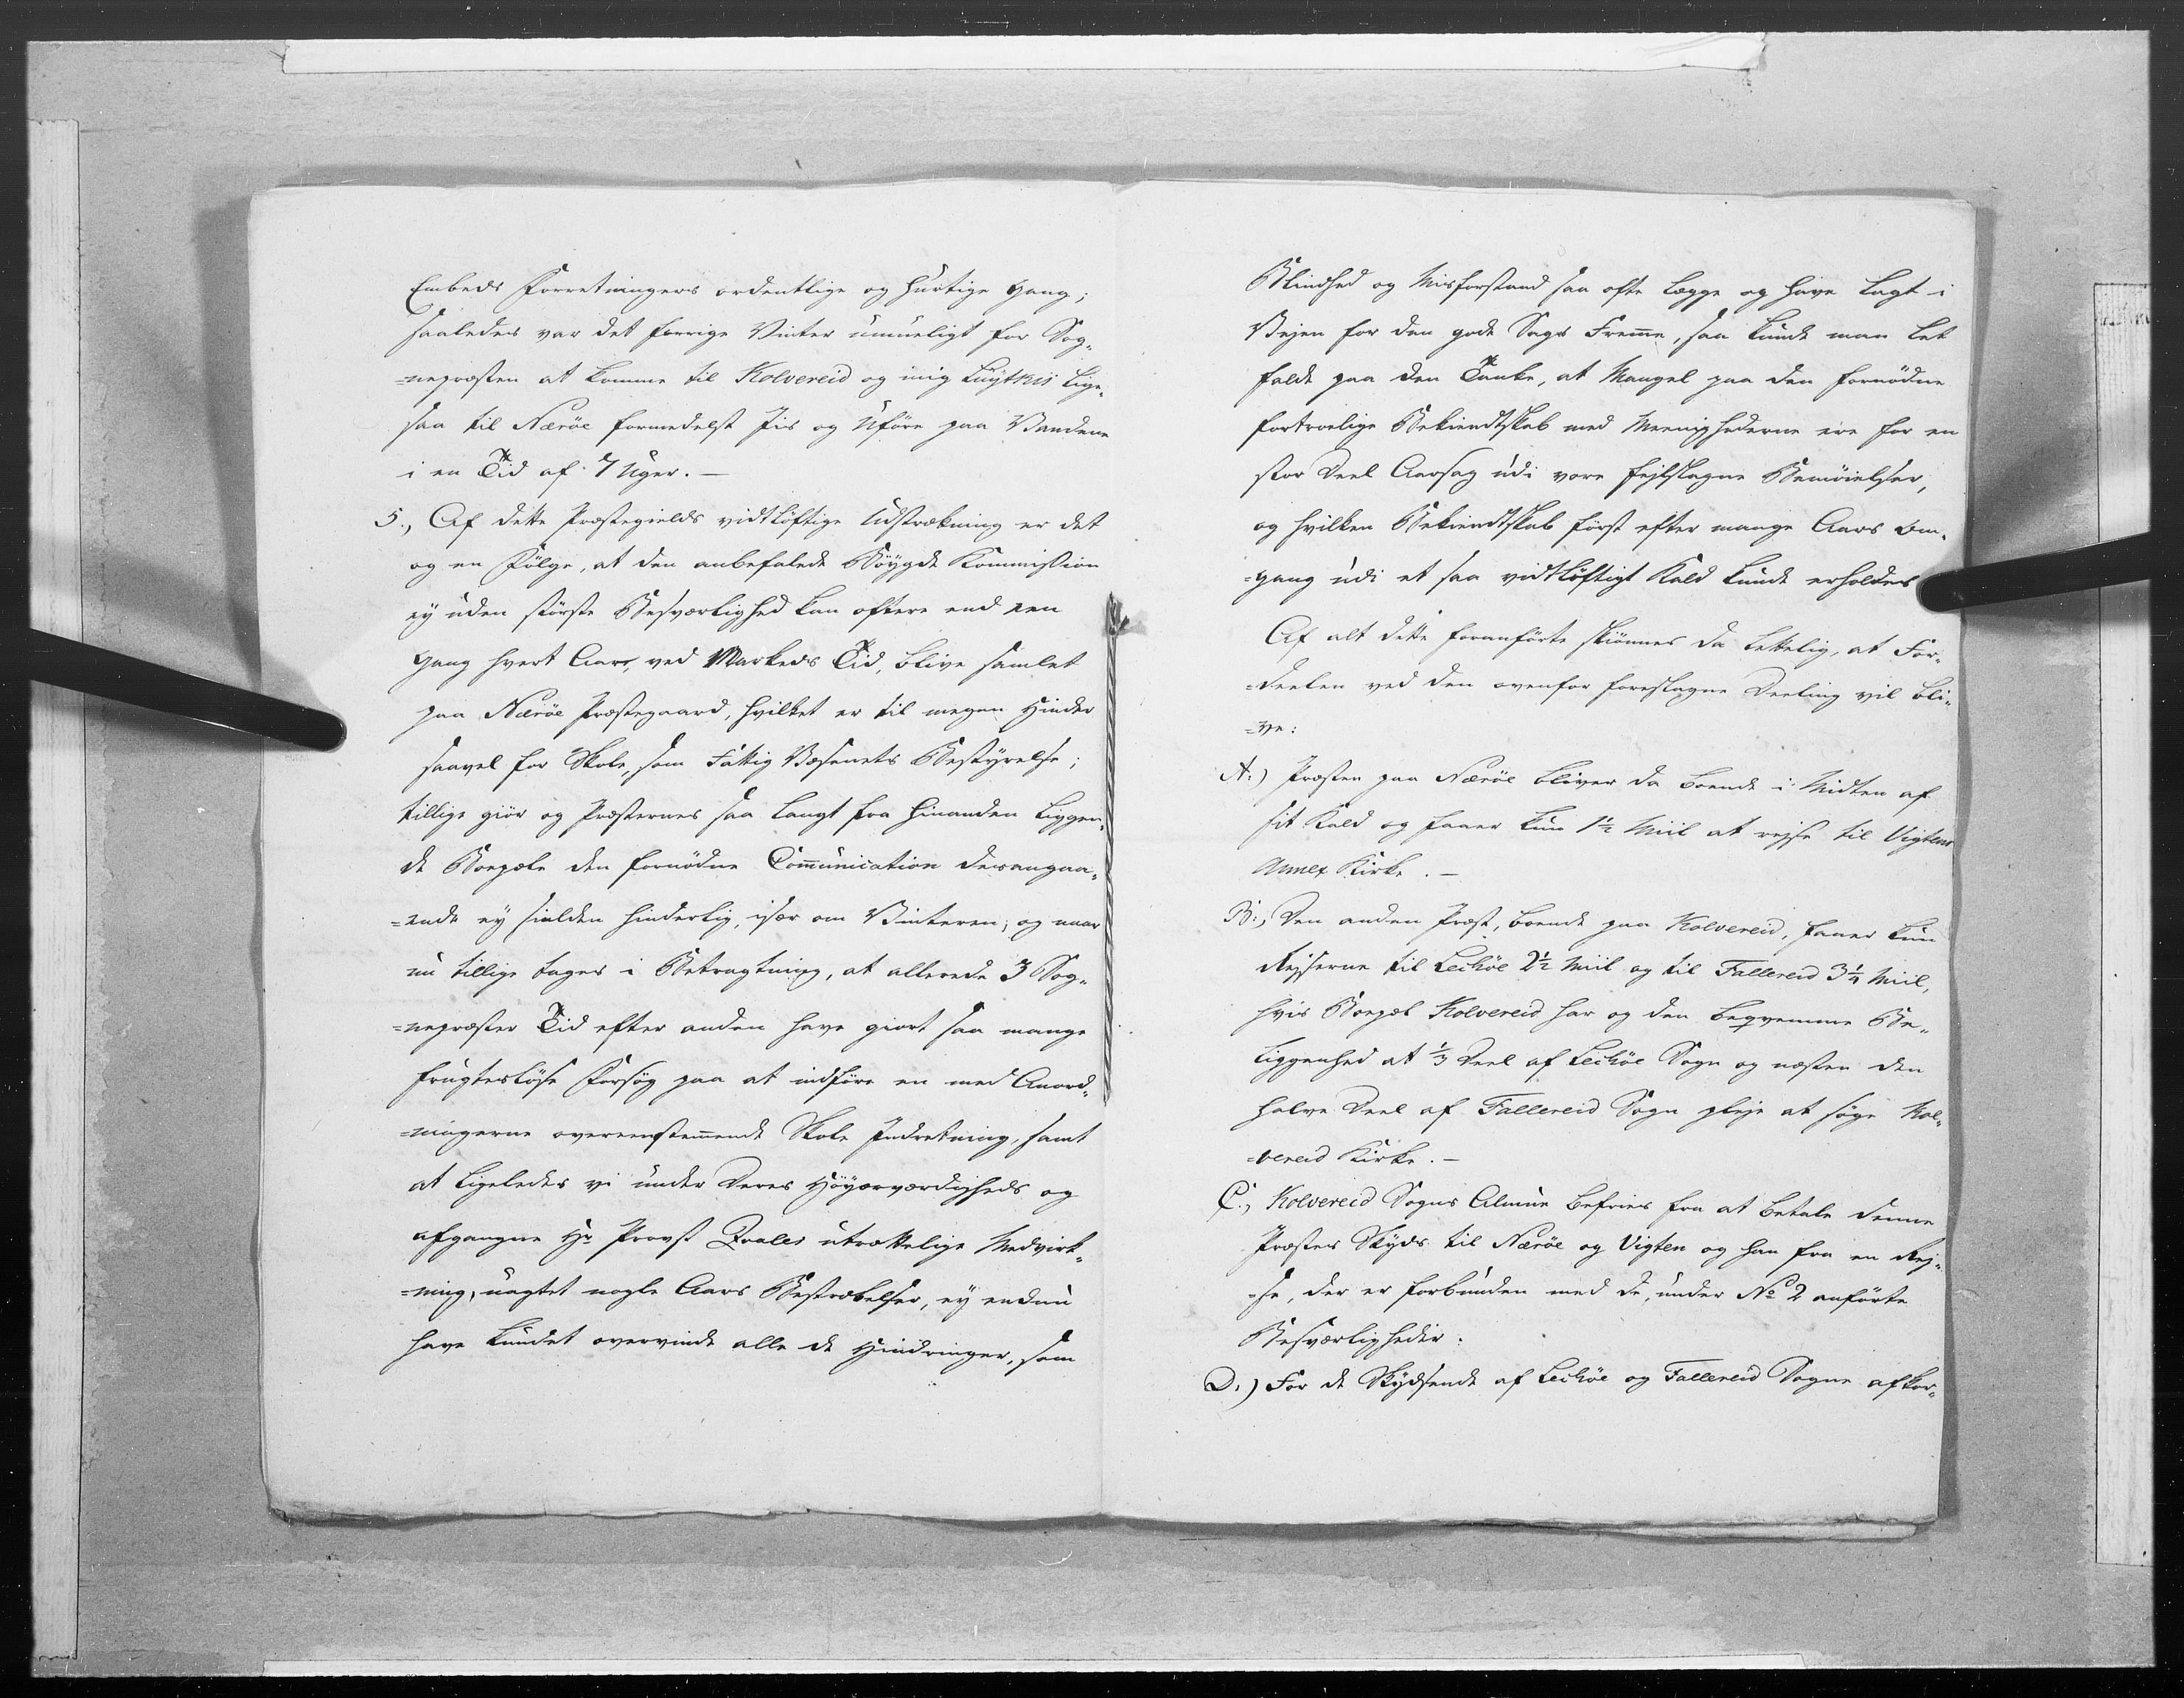 Embeds Forretningers ordentlige og hurtige Gang;
saaledes var det forrige Vinter umueligt for Sog-
=nepræsten at komme til Kolvereid og mig lige-
saa til Nærøe formedelst Iis og Uføre paa Vandene
i en Tid af 7 Uger. —
5., Af dette Præstegields vidtløftige Udstrækning er det
og en Følge, at den anbefalede Bøygde Kommission
ey uden største Besværlighed kan oftere end een
Gang hvert Aar, ved Markeds Tid, blive samlet
paa Nærøe Præstegaard, hvilket er til megen Hinder
saavel for Skole, som Fattig Væsenets Bestyrelse;
tillige giør og Præsternes saa langt fra hinanden liggen-
de Boepæle den fornødne Com̅unication desangaa-
=ende ey sielden hinderlig, især om Vinteren; og naar
nu tillige tages i Betragtning, at allerede 3 Sog-
=nepræster Tid efter anden have giort saa mange
frugtesløse Forsøg paa at indføre en med Anord-
=ningerne overeenstem̅ende Skole Indretning, samt
at ligeledes vi under Deres Høyærværdigheds og
afgangne Hr Provst Qvales utrættelige Medvirk-
=ning, uagtet nogle Aars Bestræbelser, ey endnu
have kundet overvinde alle de Hindringer, som
Blindhed og Misforstand saa ofte lægge og have lagt i
Vejen for den gode Sags Frem̅e, saa kunde man let
falde paa den Tanke, at Mangel paa den fornødne
fortroelige Bekiendtskab med Meenighederne ere for en
stor Deel Aarsag udi vore fejlslagne Bemøielser,
og hvilken Bekiendtskab først efter mange Aars Om-
=gang udi et saa vidtløftigt Kald kunde erholdes
Af alt dette foranførte skiønnes da lettelig, at For-
=deelen ved den ovenfor foreslagne Deeling vil bli-
=ve:
A:) Præsten paa Nærøe bliver da boende i Midten af
sit Kald og faaer kun 1½ Miil at rejse til Vigtens
Annex Kirke. —
B:, Den anden Præst, boende paa Kolvereid, faaer kun
Rejserne til Lechøe 2½ Miil og til Fallereid 3¼ Miil,
hvis Boepæl Kolvereid har og den beqvemme Be-
liggenhed at ⅓ Deel af Lechøe Sogn og næsten den
halve Deel af Fallereid Sogn pleje at søge Kol-
=vereid Kirke. —
C., Kolvereid Sogns Almue befries fra at betale denne
Præstes Skyds til Nærøe og Vigten og han fra en Rej-
=se, der er forbunden med de, under No 2 anførte
Besværligheder.
D.) For de Skydsende af Lechøe og Fallereid Sogne afkor-